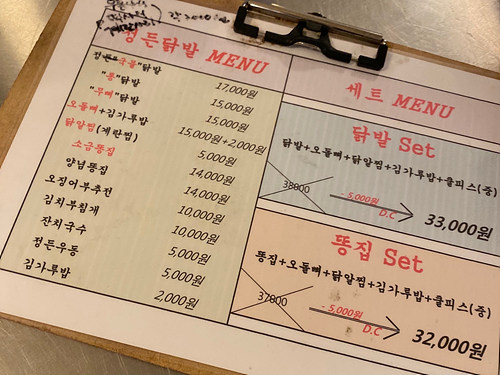 각 2000원
정든닭발 MENU
정든"국물"닭발 17,000원
"통"닭발 15,000원
"무뼈"닭발 15,000원
오돌뼈+김가루밥 15,000원+2,000원
닭알찜(계란찜) 5,000원
소금똥집 14,000원
양념똥집 14,000원
오징어부추전 10,000원
김치부침개 10,000원
잔치국수 5,000원
정든우동 5,000원
김가루밥 2,000원
세트 MENU
닭발 Set
닭발+오돌뼈+닭알찜+김가루밥+쿨피스(중)
38000
- 5,000원
D.C
33,000원
똥집 Set
똥집+오돌뼈+닭알찜+김가루밥+쿨피스(중)
37000
- 5,000원
D.C
32,000원